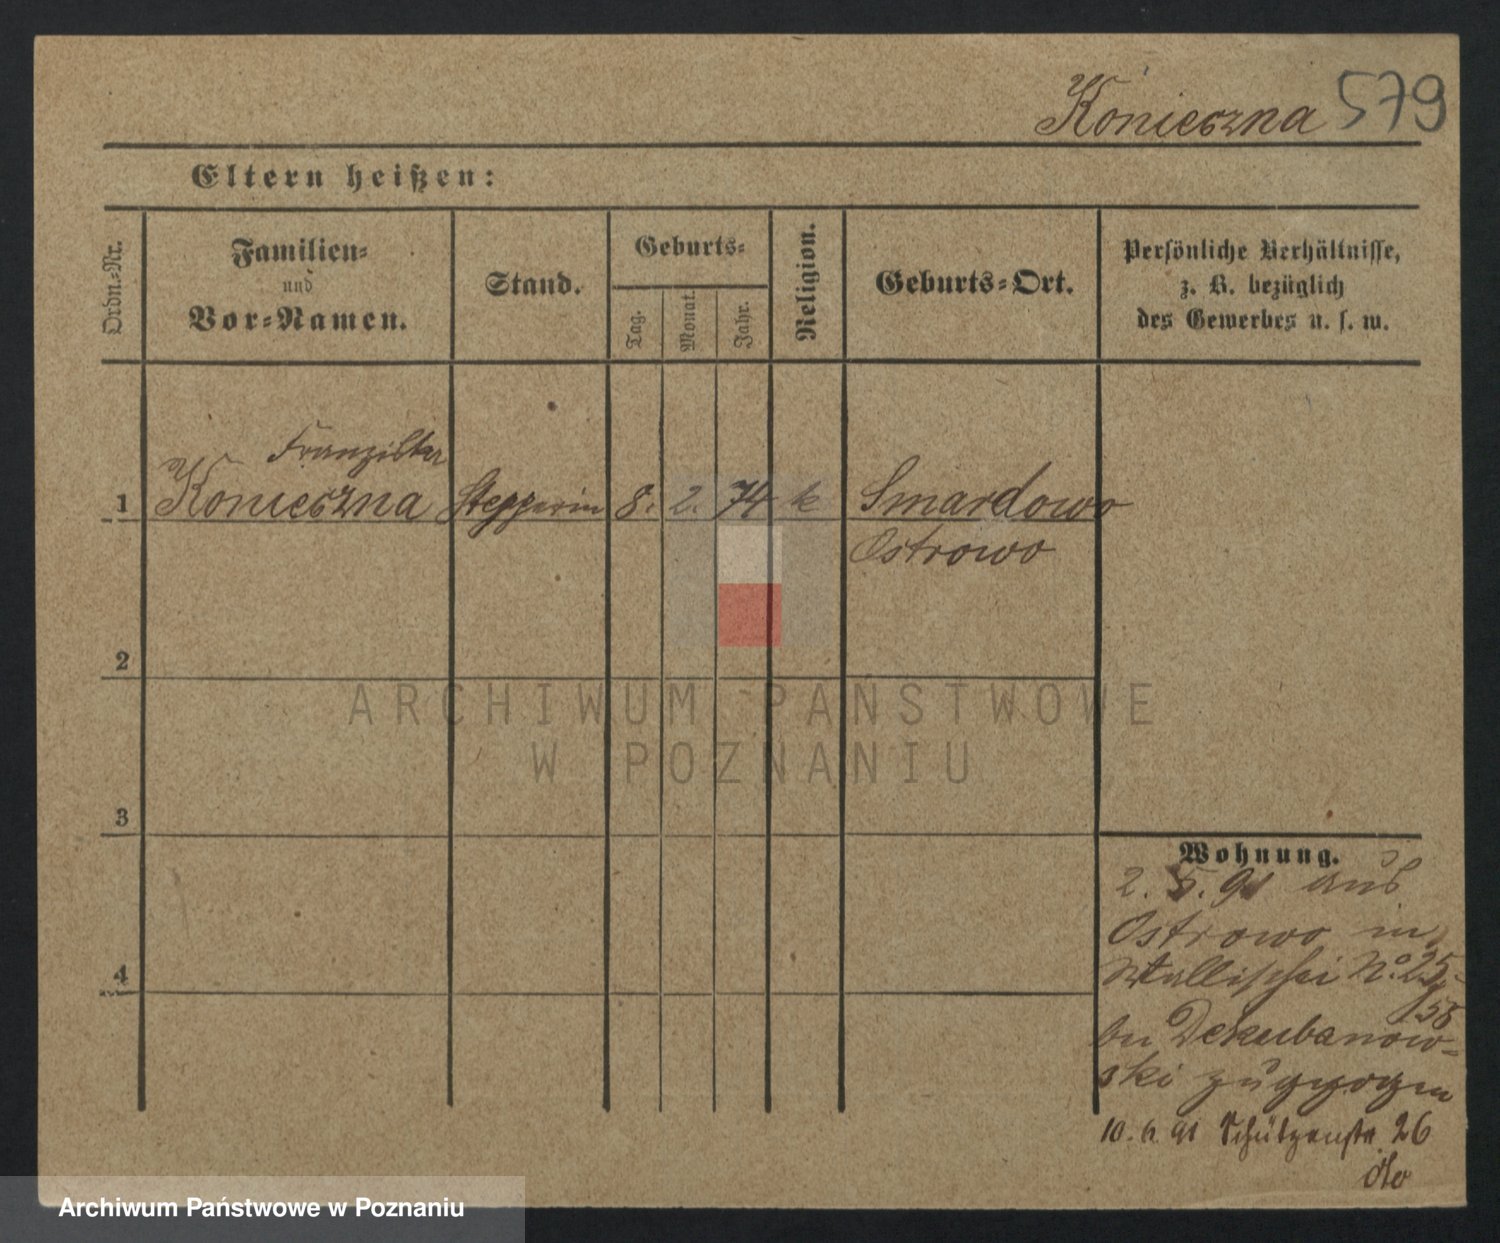 Konieczna 579
Eltern heißen:
Ordn.-Nr.
Familien-
und
Vor-Namen.
Stand.
Geburts-
Tag.
Monat.
Jahr.
Religion.
Geburts-Ort.
Persönliche Verhältnisse,
z. B. bezüglich
des Gewerbes u. s. w.
Franziska
1 Konieczna Stepperin 8. 2. 74 k Smardowo
Ostrowo
2
ARCHIWUM PAŃSTWOWE
W POZNANIU
3
Wohnung.
2. 5. 91 aus
Ostrowo in
Wallischei No. 25
58
bei Dekubanow-
ski zugezogen
4
10. 6. 91 Schützenstr. 26
Archiwum Państwowe w Poznaniu